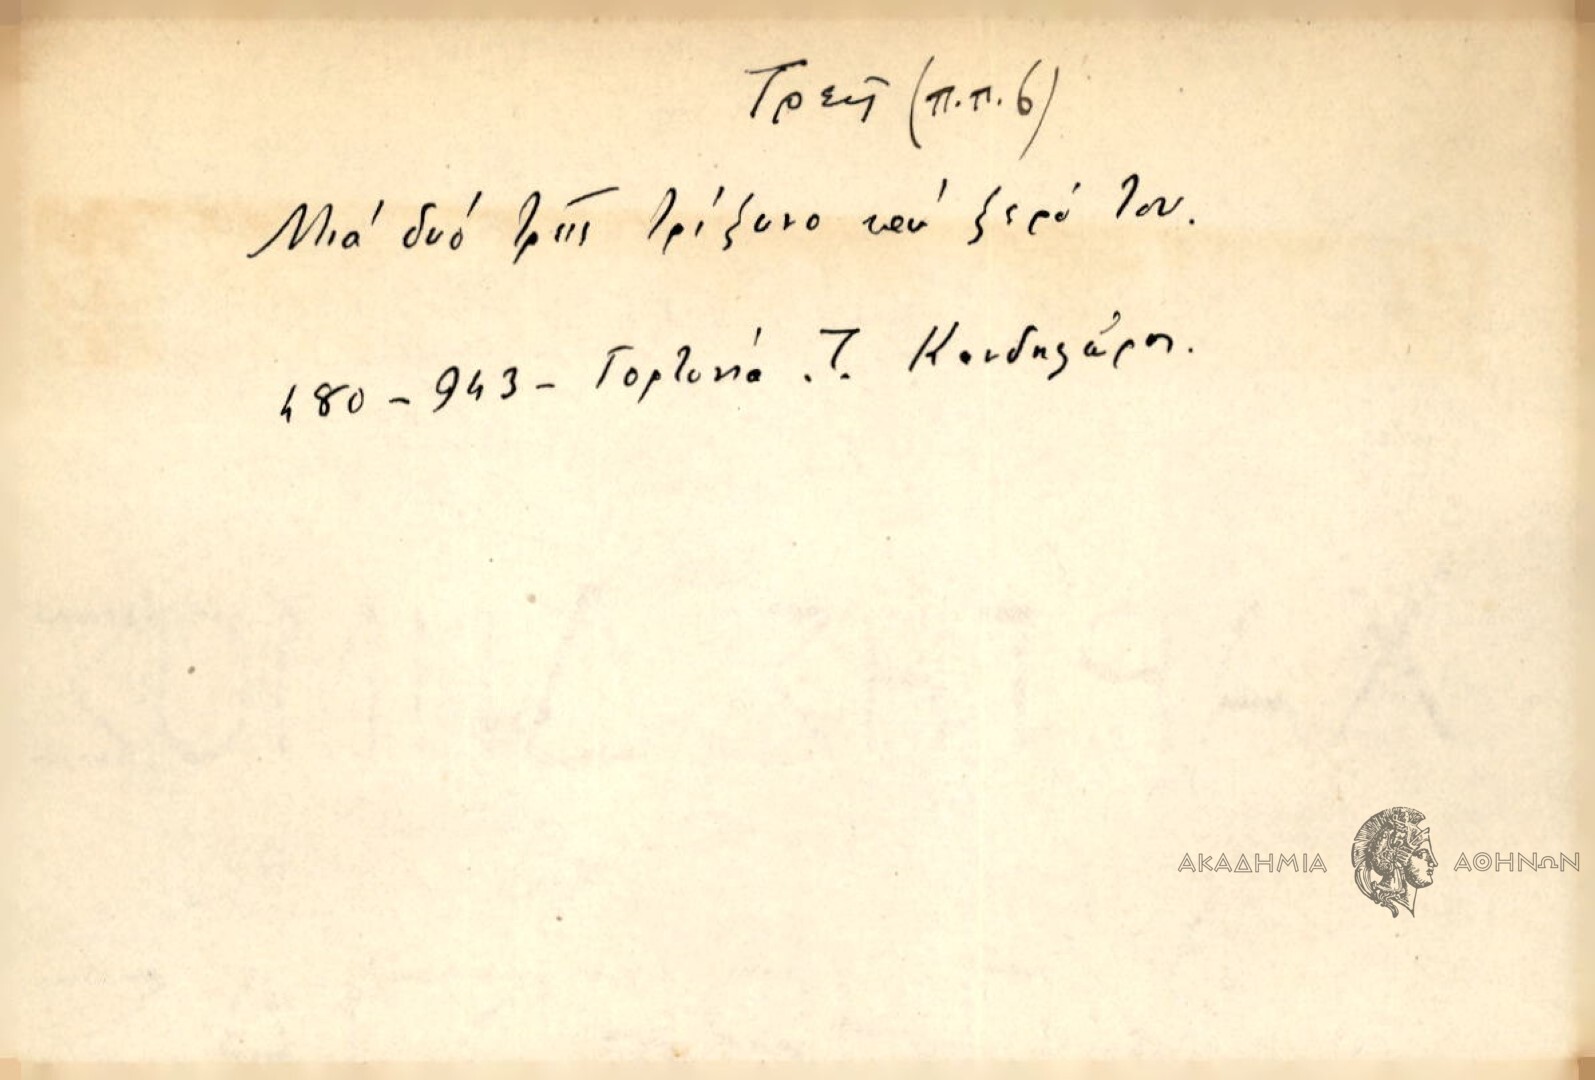 Τρεῖς (π.π. 6)
Μιά δυό τρεῖς τρίξυνο καί ξερό του.
480 - 943 - Γορτυνία . Τ. Κανδηλώρος.
ΑΚΑΔΗΜΙΑ ΑΘΗΝΩΝ